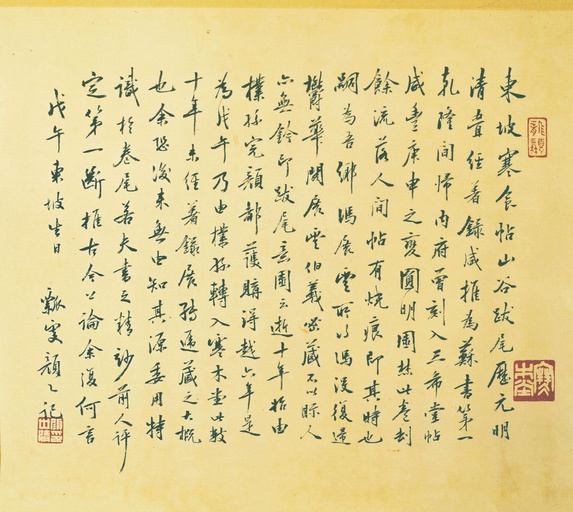 東坡寒食帖山谷跋尾歷元明
清疊經著錄咸推為蘇書第一
乾隆間歸內府曾刻入三希堂帖
咸豐庚申之變圓明園焚此卷劫
餘流落人間帖有燒痕即其時也
嗣為吾鄉馮展雲所得馮沒復歸
鬱華閣展雲伯羲密藏不以眎人
亦無鈐印跋尾意園云逝十年始由
樸孫完顏都護購得越六年是
為戊午乃由樸孫轉入寒木堂此數
十年來未經著錄展轉遞藏之大概
也余恐後來無由知其源委用特
識於卷尾若夫書之精妙前人評
定第一斷推古今公論余復何言
戊午東坡生日 瓢叟顏記